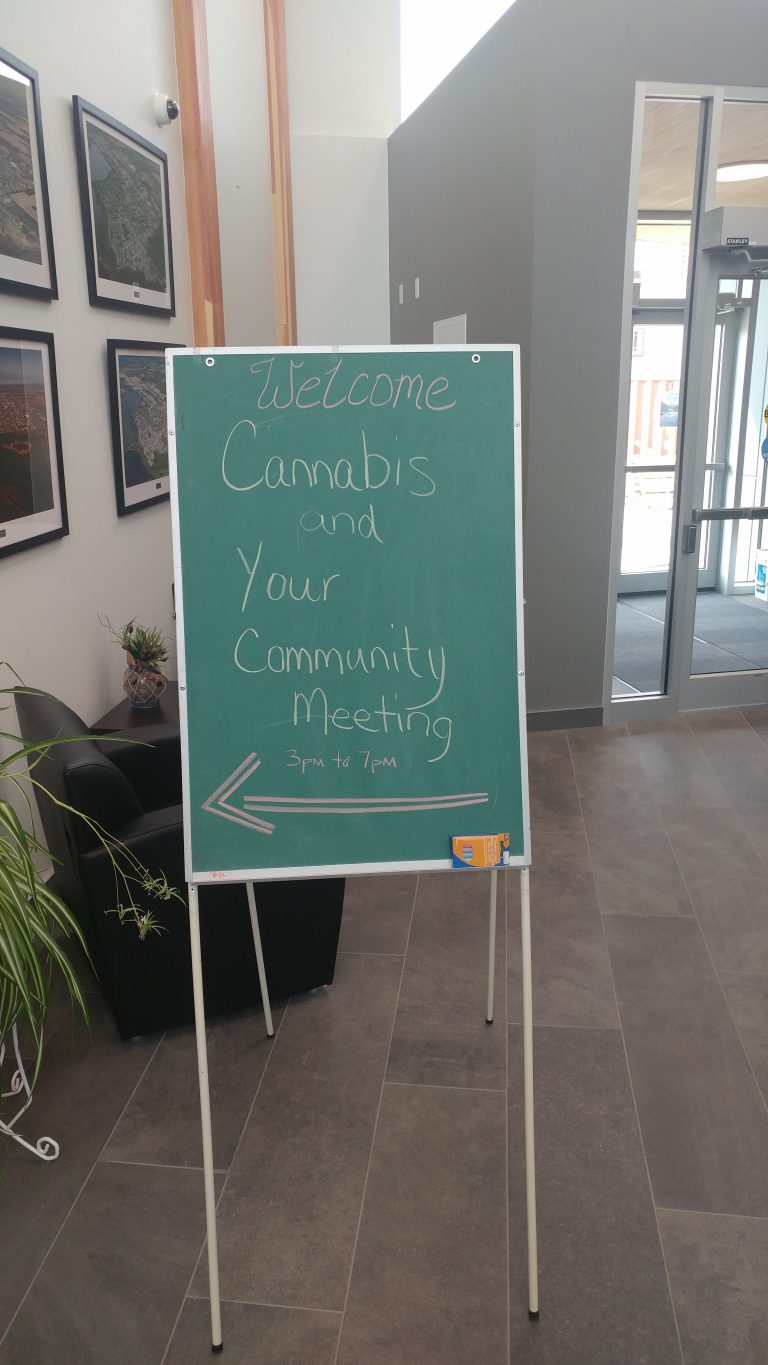 Welcome
Cannabis
and
Your
Community
Meeting
3pm to 7pm
STANLEY